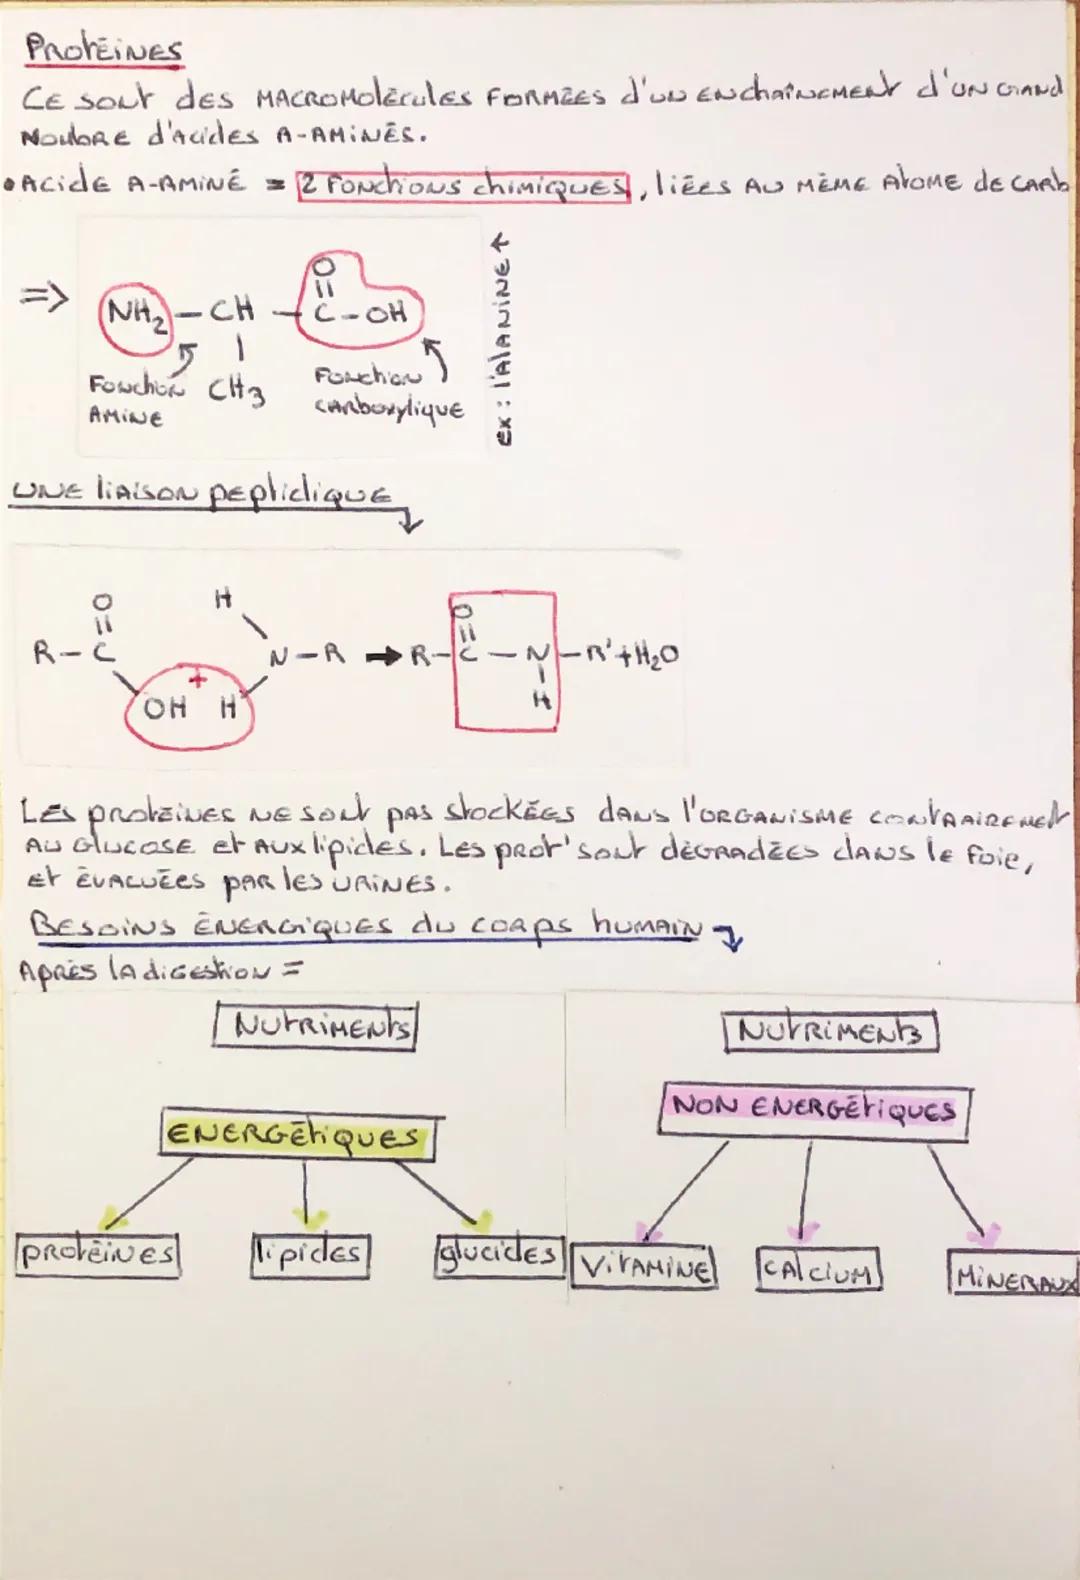 PROTÉINES
CE SONT des MACROMOLÉCULES FORMÉES d'UN ENCHAÎNEMENT d'UN GRAND
NOMBRE d'ACIDES A-AMINÉS.
• ACIDE A-AMINÉ = 2 FONCTIONS CHIMIQUES, liÉES AU MÊME ATOME de CARB
=> NH2 - CH - C - OH
O
CH3
FONCTION AMINE
FONCTION CARBOXYLIQUE
ex : l'ALANINE ↑
UNE LIAISON PEPTIDIQUE
O H
R - C N - R → R - C - N - R' + H2O
O
OH + H H
LES PROTÉINES NE SONT PAS STOCKÉES DANS l'ORGANISME CONTRAIREMENT
AU GLUCOSE et AUX lipides. Les PROT' SONT DÉGRADÉES DANS le foie,
et ÉVACUÉES PAR les URINES.
BESOINS ÉNERGIQUES du CORPS HUMAIN
APRÈS LA DIGESTION =
NUTRIMENTS
ENERGÉTIQUES
PROTÉINES lipides glucides
NUTRIMENTS
NON ENERGÉTIQUES
VITAMINE CALCIUM MINERAUX